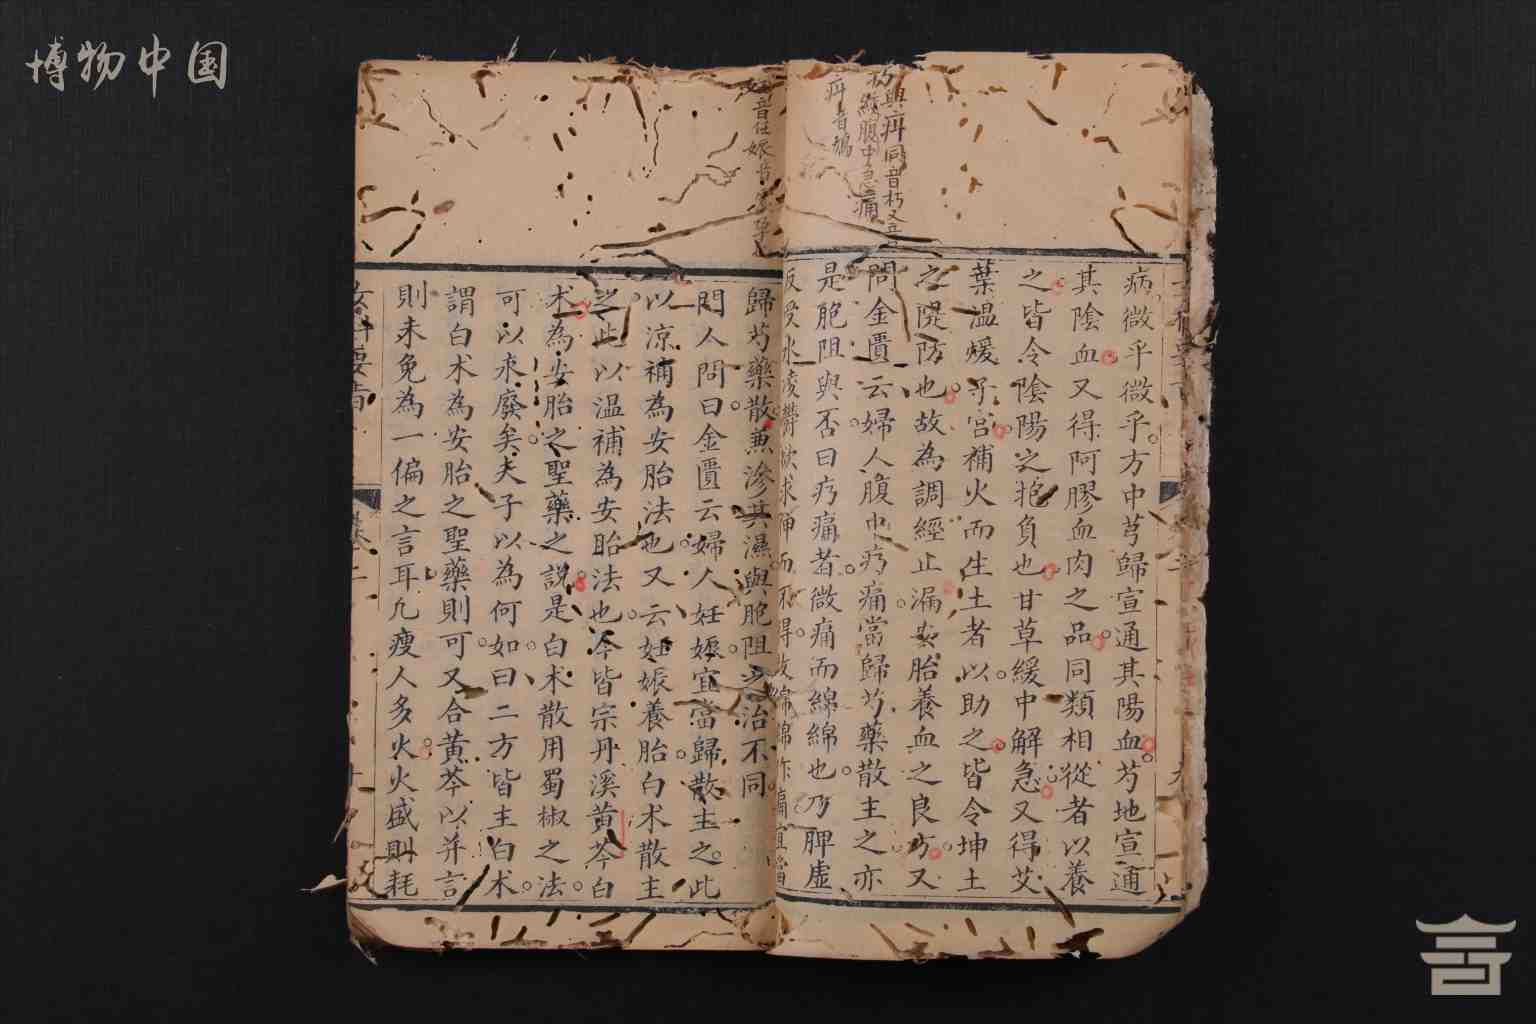 博物中国
病微乎微乎方中芎歸宣通其陽血芍地宣通
其陰血又得阿膠血肉之品同類相從者以養
之皆令陰陽之抱負也甘草緩中解急又得艾
葉溫煖子宮補火而生土者以助之皆令坤土
之隄防也故為調經止漏安胎養血之良方又
問金匱云婦人腹中㽲痛當歸芍藥散主之亦
是胞阻與否曰㽲痛者微痛而綿綿也乃脾虛
反受水凌鬱欲求伸而不得故綿綿作痛宜當
歸芍藥散兼滲其濕與胞阻之治不同
門人問曰金匱云婦人妊娠宜當歸散主之此
以涼補為安胎法也又云妊娠養胎白术散主
之此以溫補為安胎法也今皆宗丹溪黃芩白
术為安胎之聖藥之說是白术散用蜀椒之法
可以求廢矣夫子以為何如曰二方皆主白术
謂白术為安胎之聖藥則可又合黃芩以并言
則未免為一偏之言耳凡瘦人多火火盛則耗
女科要旨
卷二